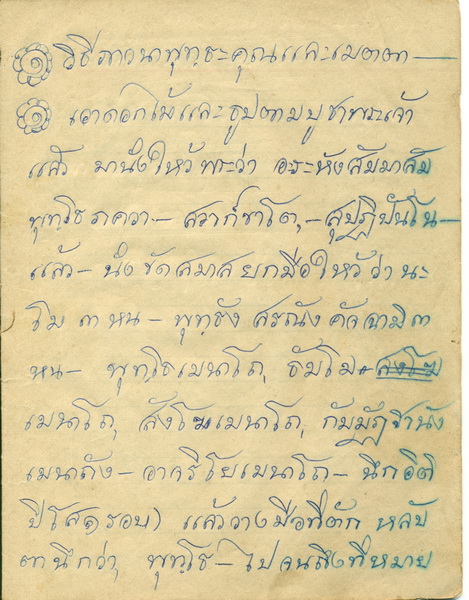 ๑ วิธีภาวนาพุทธะคุณและเมตตา —
๑ เอาดอกไม้และธูปตามบูชาพระเจ้า
แล้ว มานั่งไหว้พระว่า อะระหังสัมมาสัม
พุทโธ ภควา — สวากขาโต, — สุปฏิปันโน —
แล้ว — นั่งขัดสมาส ยกมือไหว้ ว่า นะ
โม ๓ หน — พุทธัง สรณัง คัจฉามิ ๓
หน — พุทโธเมนาโถ, ธัมโม
เมนาโถ, สังโฆเมนาโถ, กัมมัฏฐานัง
เมนาถัง — อาจริโยเมนาโถ — นึกอิติ
ปิโส ๑ รอบ) แล้ววางมือที่ตัก หลับ
ตานึกว่า พุทโธ — ไปจนถึงที่หมาย